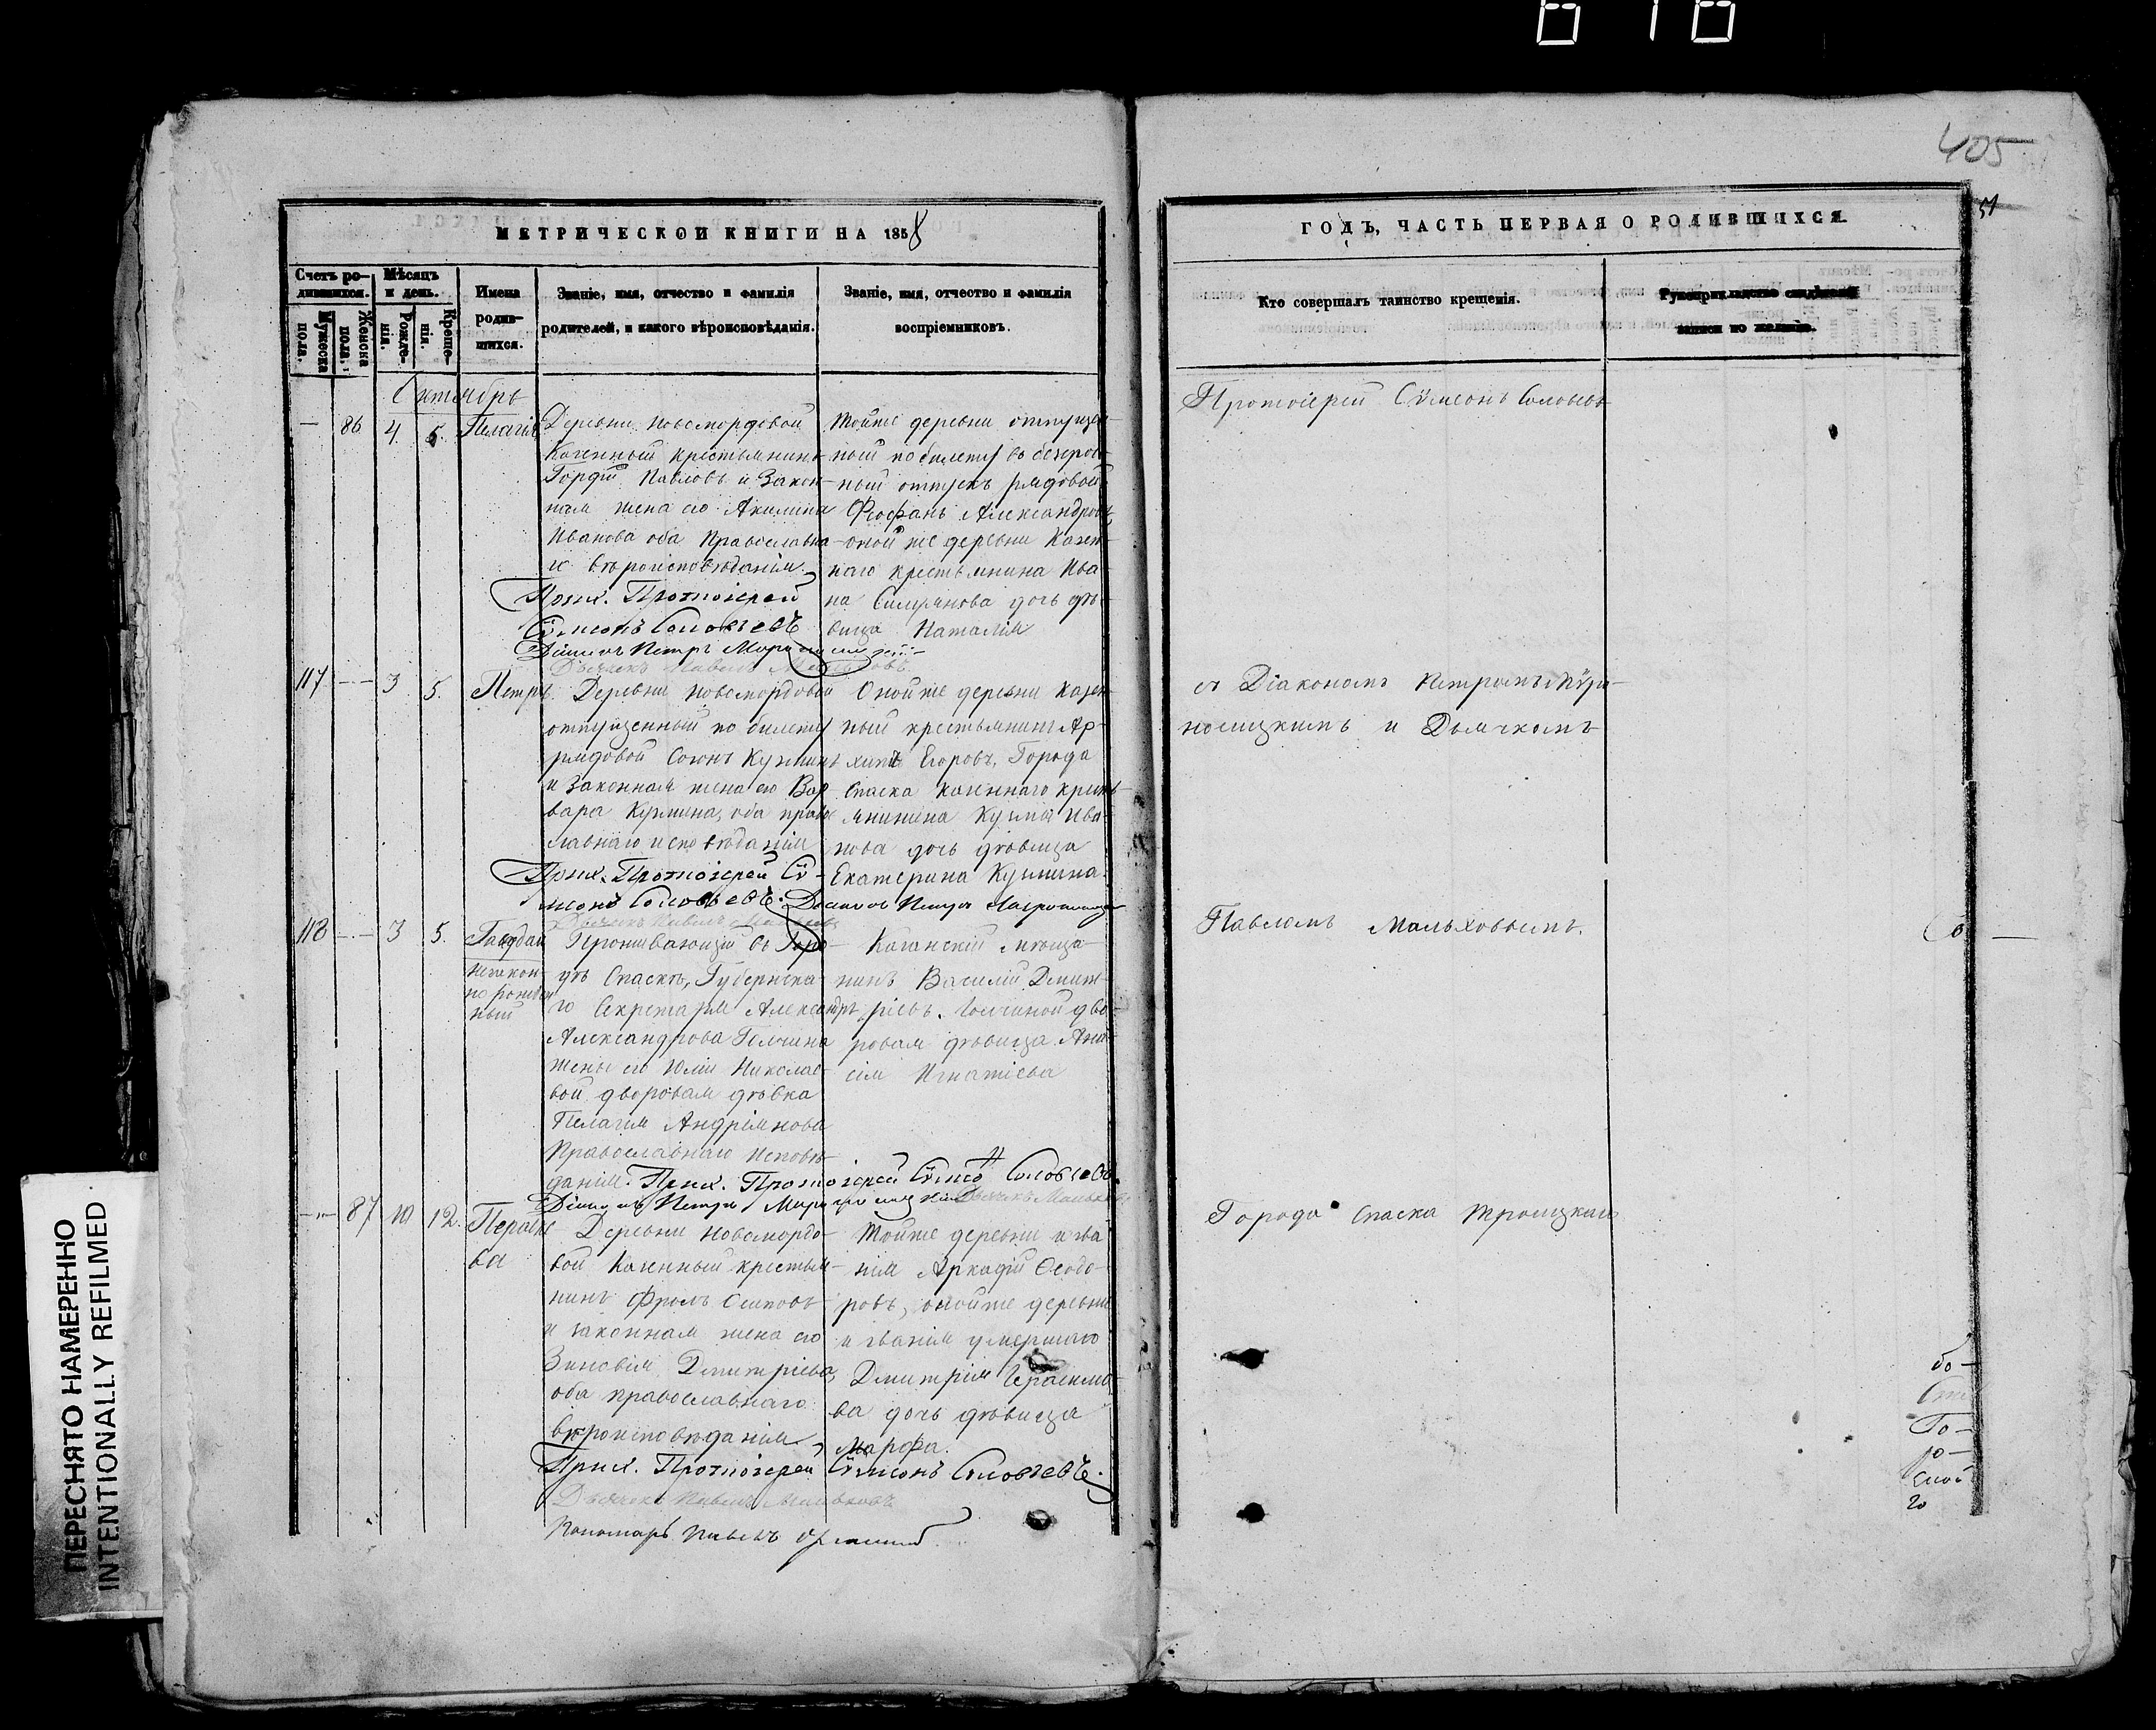 405
51
МЕТРИЧЕСКОЙ КНИГИ НА 1858
ГОДЪ, ЧАСТЬ ПЕРВАЯ О РОДИВШИХСЯ.
Счетъ ро-
дившихся.
Мужеска
пола.
Женска
пола.
Мѣсяцъ
и день.
Рожде-
нія.
Креще-
нія.
Имена
родив-
шихся.
Званіе, имя, отчество и фамилія
родителей, и какого вѣроисповѣданія.
Званіе, имя, отчество и фамилія
воспріемниковъ.
Кто совершалъ таинство крещенія.
Рукоприкладство свидѣтелей
записи по желанію.
Октябрь
— 86 4. 5. Пелагія
Деревни Новомордовой
Казенный крестьянинъ
Гордѣй Павловъ и закон-
ная жена его Акилина
Иванова оба Православна-
го вѣроисповѣданія
Прих. Протоіерей
Сѵмеонъ Соловьевъ
Діаконъ Петръ
Дьячекъ Павелъ
Тойже деревни отпущен-
ный по билету въ безсроч-
ный отпускъ рядовой
Феофанъ Александровъ,
оной же деревни Казен-
наго крестьянина Ива-
на дочь дѣ-
вица Наталія
117 — 3 5. Петръ.
Деревни Новомордовой
отпущенный по билету
рядовой Кузминъ
и законная жена его Вар-
вара Кузмина, оба право-
славнаго исповѣданія
Прих. Протоіерей Сѵ-
меонъ Соловьевъ. Діаконъ Петръ
Дьячекъ Павелъ
Оной же деревни Казен-
ный крестьянинъ Ар-
хипъ Егоровъ, Города
Спаска казеннаго кресть-
янинина Кузмы Ива-
нова дочь дѣвица
Екатерина Кузмина.
118 — 3 5.
незакон-
но рожден-
ный
Проживающій въ Горо-
дѣ Спаскѣ, Губернска-
го Секретаря Александръ
Александрова
жены его Юліи Николае-
вой дворовая дѣвка
Пелагія Андріянова
Православнаго исповѣ-
данія. Прих. Протоіерей Сѵмеонъ Соловьевъ.
Діаконъ Петръ Дьячекъ
Казанскій мѣща-
нинъ Василій Дмит-
ріевъ. дво-
ровая дѣвица
Игнатіева
— 87 10 12. Параске-
ва
Деревни Новомордо-
вой Казенный крестья-
нинъ Фролъ Осиповъ
и законная жена его
Зиновія Дмитріева,
оба православнаго
вѣроисповѣданія
Прих. Протоіерей Сѵмеонъ Соловьевъ.
Дьячекъ Павелъ
Пономарь Павелъ
Тойже деревни и зва-
нія Аркадій Ѳеодо-
ровъ, оной же деревни
и званія умершаго
Дмитрія Герасимо-
ва дочь дѣвица
Марфа.
Протоіерей Сѵмеонъ Соловьевъ
съ Діакономъ Петромъ
и Дьячкомъ
Павломъ Мальховымъ.
Города Спаска Троицкаго
Со —
бо-
Го-
ро-
ской
го
ПЕРЕСНЯТО НАМЕРЕННО
INTENTIONALLY REFILMED